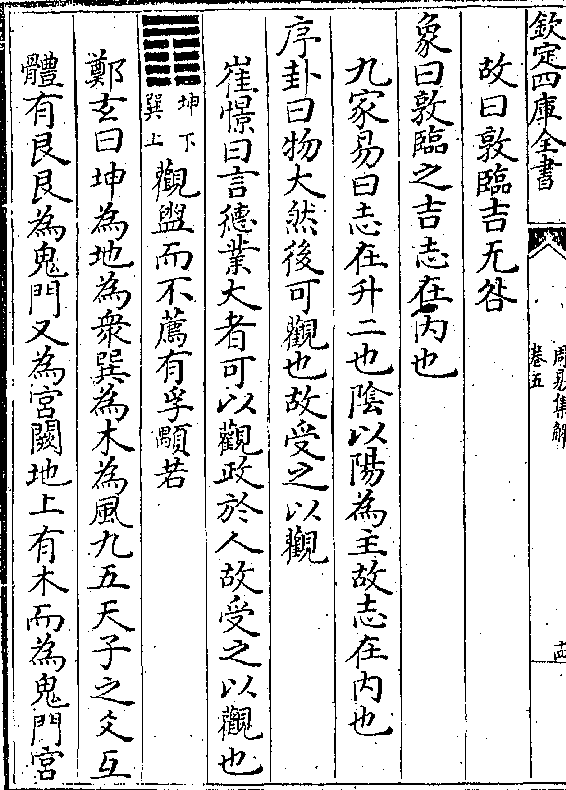 欽定四庫全書
周易集解
卷五
十四
故曰敦臨吉无咎
象曰敦臨之吉志在内也
九家易曰志在升二也陰以陽為主故志在内也
序卦曰物大然後可觀也故受之以觀
崔憬曰言德業大者可以觀政於人故受之以觀也
坤下
巽上
觀盥而不薦有孚顒若
鄭玄曰坤為地為衆巽為木為風九五天子之爻互
體有艮艮為鬼門又為宫闕地上有木而為鬼門宫